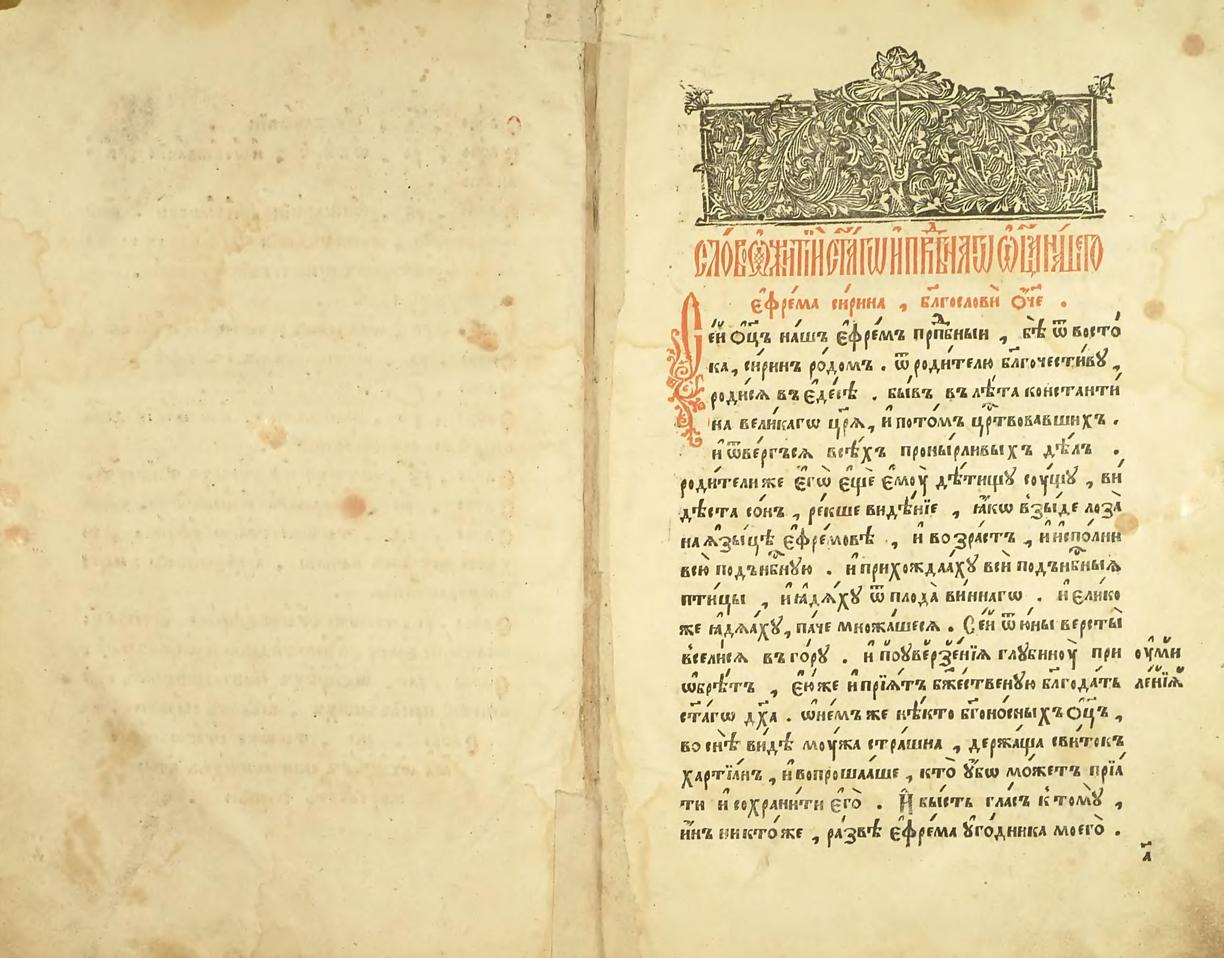 СЛО́ВО Ѡ҆ ЖИТІЍ СТ҃А́ГѠ И҆ ПРПⷣБНАГѠ Ѻ҆ЦА̀ НА́ШЕГО
є҆фре́ма си́рина , бл҃гословѝ ѻ҆́ч҃е .
Се́й ѻ҆ц҃ъ на́шъ є҆фре́мъ прпⷣбныи , бѣ̀ ѿ восто́
ка , си́ринъ ро́домъ . ѿ роди́телю бл҃гочести́вꙋ ,
роди́сѧ въ є҆де́сѣ . бы́въ въ лѣ́та константи́
на вели́кагѡ цр҃ѧ̀ , и҆ пото́мъ црⷭ҇твовавшихъ .
и҆ ѿве́ргъсѧ всѣ́хъ проны́рливыхъ дѣ́лъ .
роди́тели же є҆гѡ̀ є҆щѐ є҆моу̀ дѣ́тищꙋ соу́щꙋ , ви́
дѣста со́нъ , ре́кше видѣ́нїе , ꙗ҆́кѡ взы́де лоза̀
на ѧ҆зы́цѣ є҆фре́мовѣ , и҆ возрастъ , и҆ и҆спо́лни
всю̀ подънбⷭ҇ную . и҆ прихожда́ахꙋ всѝ подънбⷭ҇ныѧ
пти́цы , и҆ ꙗ҆дѧ́хꙋ ѿ плода̀ ви́ннагѡ . и҆ є҆ли́ко
же ꙗ҆дѧ́ахꙋ , па́че множа́шесѧ . Се́й ѿ ю҆́ны версты̀
всели́сѧ въ го́рꙋ . и҆ поуверзе́нїѧ глꙋбиноу̀ при
ѡ҆брѣ́тъ , є҆ю́же и҆ прїѧ́тъ бж҃е́ственꙋю бл҃года́ть
ст҃а́гѡ дх҃а . ѡ҆не́мъ же нѣ́кто бг҃оно́сныхъ ѻ҆ц҃ъ ,
во снѣ̀ ви́дѣ моу́жа стра́шна , держа́ща сви́токъ
харті́ѧнъ , и҆ вопроша́аше , кто̀ ᲂу҆́бѡ мо́жетъ прїѧ́
ти и҆ сохрани́ти є҆го̀ . И҆ бы́сть гла́съ к̾ томꙋ̀ ,
и҆́нъ никто́же , ра́звѣ є҆фре́ма ᲂу҆го́дника моего̀ .
оу҆ми
ле́нїѧ
а҃